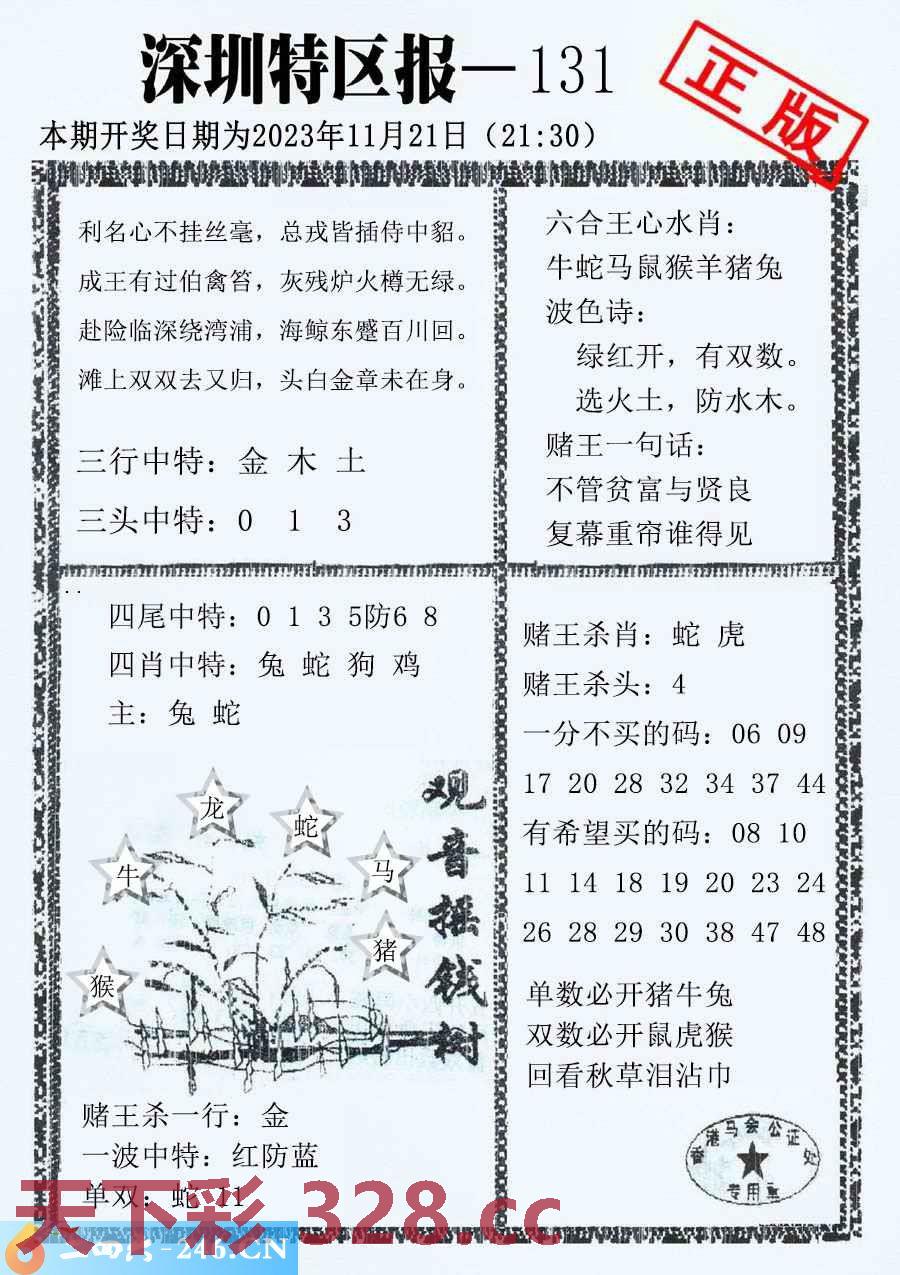 深圳特区报—131
正版
本期开奖日期为2023年11月21日（21:30）
利名心不挂丝毫，总戎皆插侍中貂。
成王有过伯禽笞，灰残炉火樽无绿。
赴险临深绕湾浦，海鲸东蹙百川回。
滩上双双去又归，头白金章未在身。
三行中特：金 木 土
三头中特：0 1 3
六合王心水肖：
牛蛇马鼠猴羊猪兔
波色诗：
绿红开，有双数。
选火土，防水木。
赌王一句话：
不管贫富与贤良
复幕重帘谁得见
四尾中特：0 1 3 5防6 8
四肖中特：兔 蛇 狗 鸡
主：兔 蛇
龙
蛇
牛
马
猪
猴
观音摇钱树
赌王杀一行：金
一波中特：红防蓝
单双：蛇 11
赌王杀肖：蛇 虎
赌王杀头：4
一分不买的码：06 09
17 20 28 32 34 37 44
有希望买的码：08 10
11 14 18 19 20 23 24
26 28 29 30 38 47 48
单数必开猪牛兔
双数必开鼠虎猴
回看秋草泪沾巾
香港马会公证处
专用章
天下彩 328.cc
-246.CN